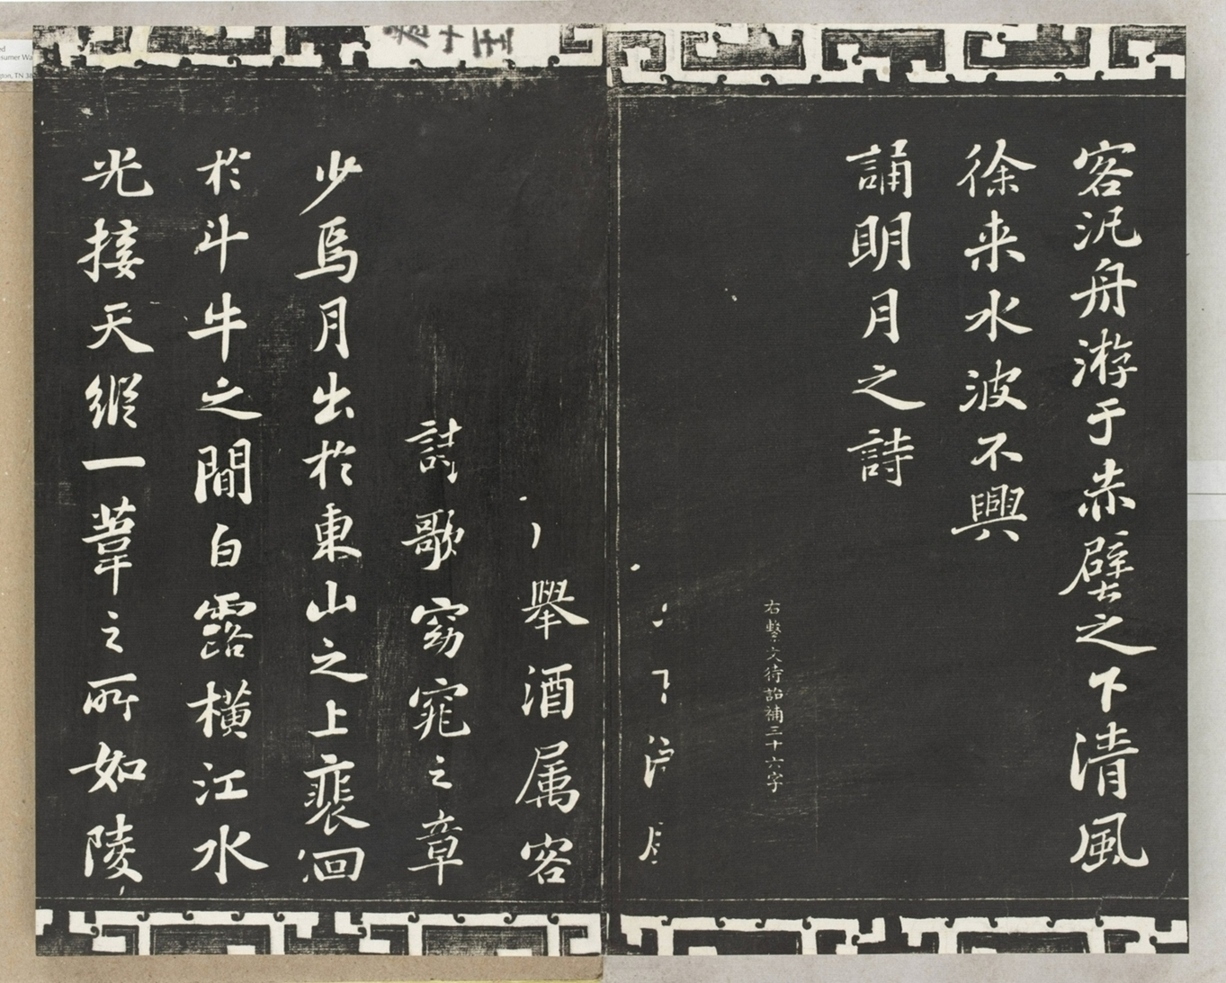 客汎舟游于赤壁之下清風
徐来水波不興
誦明月之詩
右繫文待詔補三十六字
舉酒属客
詩歌窈窕之章
少焉月出於東山之上裵徊
於斗牛之間白露橫江水
光接天縱一葦之所如陵